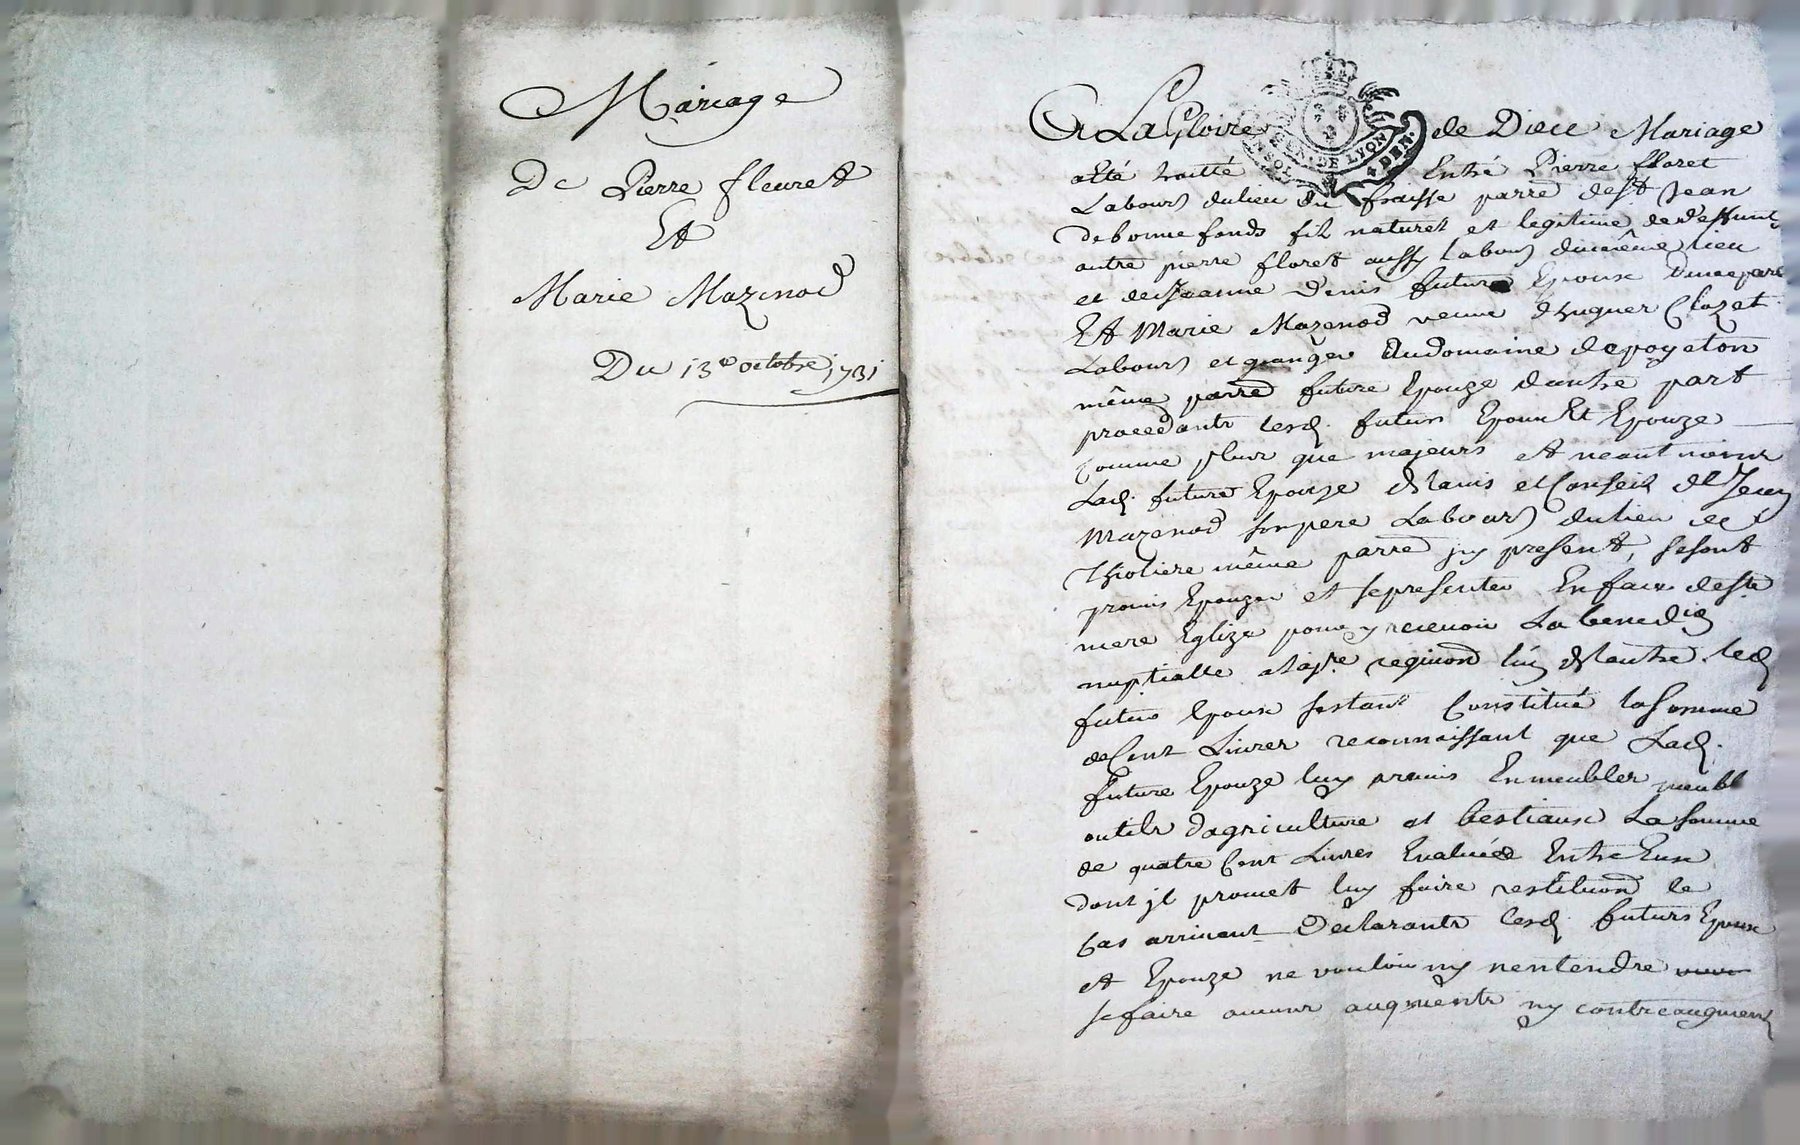 Mariage
De Pierre fleuret
Et
Marie Mazenod
Du 13e octobre 1731
A La Gloire de Dieu Mariage
a été traitté Entre Pierre floret
Labourr dulieu du fraisse parre de St Jean
de bonnefonds fils naturel et legitime de deffunt
autre pierre floret aussy Labourr dumême lieu
et de Jeanne Denis futur Epoux d'une part
Et Marie Mazenod veuve d'huguer Clozet
Labourr et granger du Domaine de poyeton
même parre future Epouze d'autre part
procedants lesd. futurs Epoux Et Epouze
comme plus que majeurs et neantmoins
Lad. future Epouze de l'avis et Conseil de Jean
Mazenod son pere Labourr dulieu de
Thioliere même parre jcy present, se sont
promis Epouzer et se presenter En face de ste
mere Eglize pour y recevoir La benedion
nuptialle a la pre requion l'un de l'autre. led
futur Epoux s'estant Constitué la Somme
de Cent Livres reconnaissant que Lad.
future Epouze luy a remis En meubles
outils d'agriculture et bestiaux La somme
de quatre Cent Livres Evaluée Entre Eux
dont jl promet luy faire restitution le
Cas arrivant Declarants lesd. futurs Epoux
et Epouze ne vouloir ny n'entendre
se faire aucuns augments ny contreaugment
GEN. DE LYON